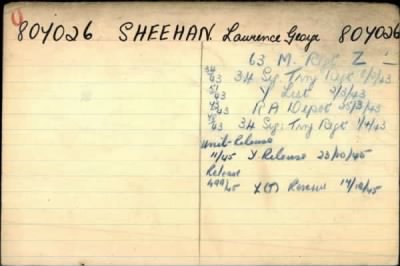 804026 SHEEHAN. Lawrence George 804026
63 M. Regt Z
34/43 34 Sigs Trng Regt /43
51/43 Y List 2/3/43
/43 RA Depot 25/3/43
/43 34 Sigs Trng Regt 1/4/43
Unit-Release
11/45 Y Release 23/10/45
Release
499/45 X(T) Reserve 14/12/45